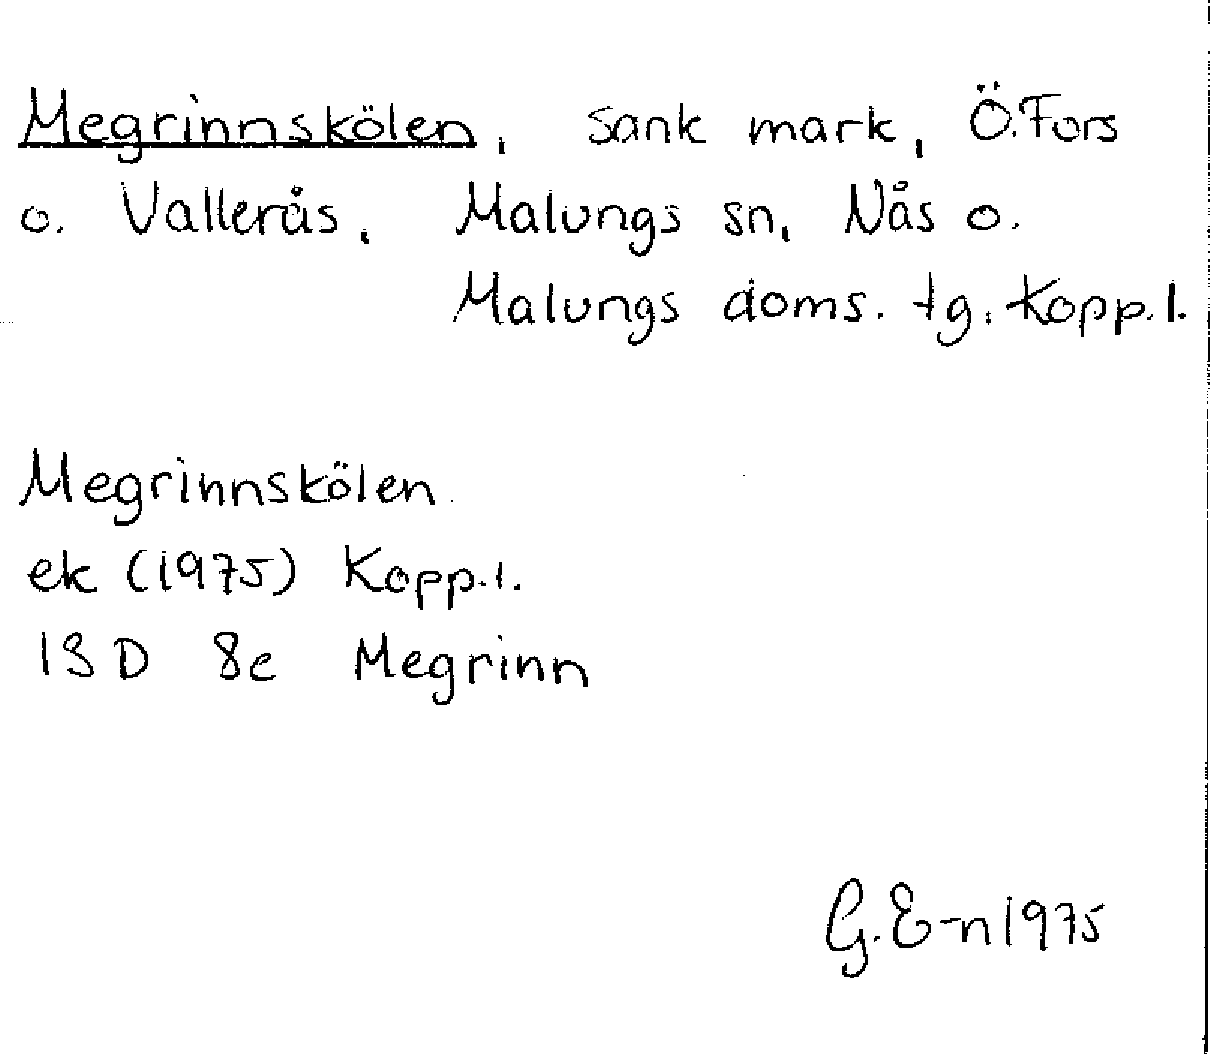 Megrinnskölen, sank mark, Ö.Fors
o. Vallerås, Malungs sn, Nås o.
Malungs doms. tg. Kopp.l.
Megrinnskölen
ek (1975) Kopp.l.
13 D 8c Megrinn
G.E-n 1975